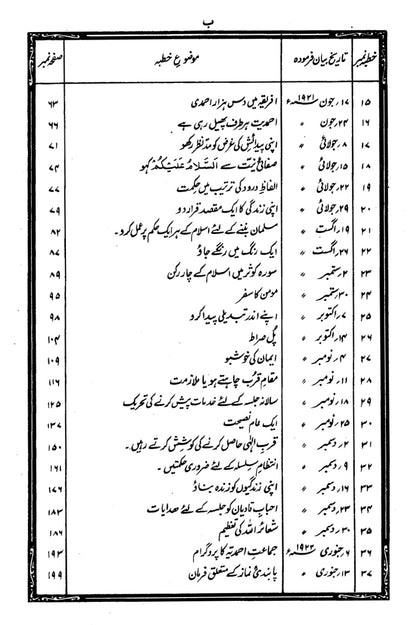 ب
خطبہ نمبر تاریخ بیان فرمودہ موضوع خطبہ صفحہ نمبر
۱۵ ۱۷؍جون ۱۹۲۱ء افریقہ میں دس ہزار احمدی ۶۳
۱۶ ۲۴؍جون ״ احمدیت ہر طرف پھیل رہی ہے ۶۶
۱۷ ۸؍جولائی ״ اپنی پیدائش کی غرض کو مدنظر رکھو ۷۱
۱۸ ۱۵؍جولائی ״ صفائی نیت سے السلام علیکم کہو ۷۴
۱۹ ۲۲؍جولائی ״ الفاظ درود کی ترتیب میں حکمت ۷۷
۲۰ ۲۹؍جولائی ״ اپنی زندگی کا ایک مقصد قرار دو ۷۹
۲۱ ۱۹؍اگست ״ مسلمان بننے کے لئے اسلام کے ہر ایک حکم پر عمل کرو۔ ۸۲
۲۲ ۲۶؍اگست ״ ایک رنگ میں رنگے جاؤ ۸۷
۲۳ ۲؍ستمبر ״ سورہ کوثر میں اسلام کے چار رکن ۸۹
۲۴ ۳۰؍ستمبر ״ مومن کا سفر ۹۵
۲۵ ۷؍اکتوبر ״ اپنے اندر تبدیلی پیدا کرو ۹۸
۲۶ ۱۴؍اکتوبر ״ پل صراط ۱۰۴
۲۷ ۴؍نومبر ״ ایمان کی خوشبو ۱۰۹
۲۸ ۱۱؍نومبر ״ مقام قرب چاہتے ہو یا ملازمت ۱۱۶
۲۹ ۱۸؍نومبر ״ سالانہ جلسہ کے لئے خدمات پیش کرنے کی تحریک ۱۲۵
۳۰ ۲۵؍نومبر ״ ایک عام نصیحت ۱۳۷
۳۱ ۲؍دسمبر ״ قرب الٰہی حاصل کرنے کی کوشش کرتے رہیں۔ ۱۵۰
۳۲ ۹؍دسمبر ״ انتظام سلسلہ کے لئے ضروری حکمتیں۔ ۱۶۱
۳۳ ۱۶؍دسمبر ״ اپنی زندگیوں کو زندہ بناؤ ۱۷۶
۳۴ ۲۳؍دسمبر ״ احباب قادیان کو جلسہ کے لئے ھدایات ۱۸۳
۳۵ ۳۰؍دسمبر ״ شعائر اللہ کی تعظیم ۱۸۶
۳۶ ۶؍جنوری ۱۹۲۲ء جماعت احمدیہ کا پروگرام ۱۹۳
۳۷ ۱۳؍جنوری ״ پابندئ نماز کے متعلق فرمان ۱۹۹